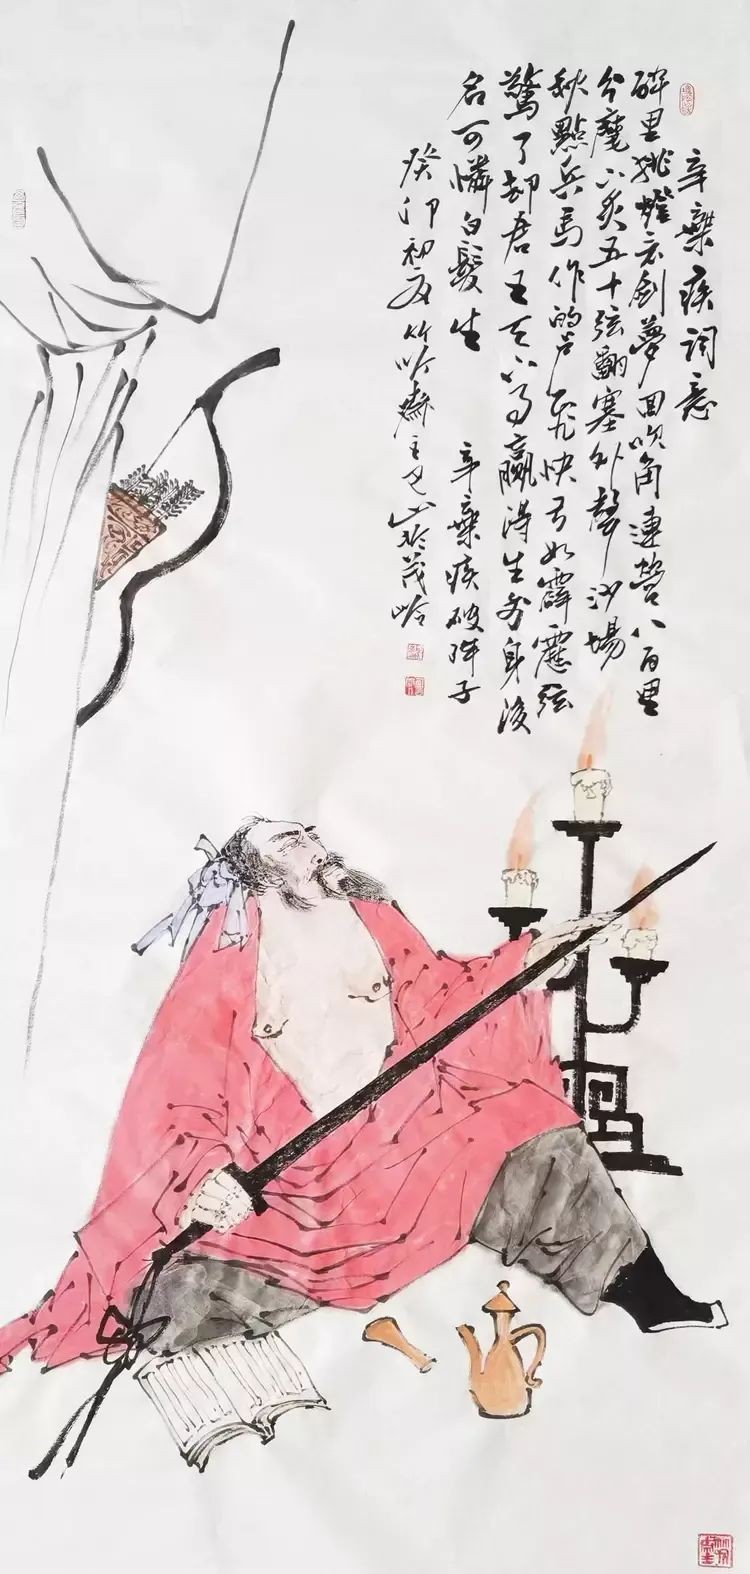 辛棄疾詞意
醉里挑燈看劍夢回吹角連營八百里
分麾下炙五十弦翻塞外聲沙場
秋點兵馬作的盧飛快弓如霹靂弦
驚了却君王天下事贏得生前身後
名可憐白髮生 辛棄疾破陣子
癸卯初夏竹吟齋主山於茂岭